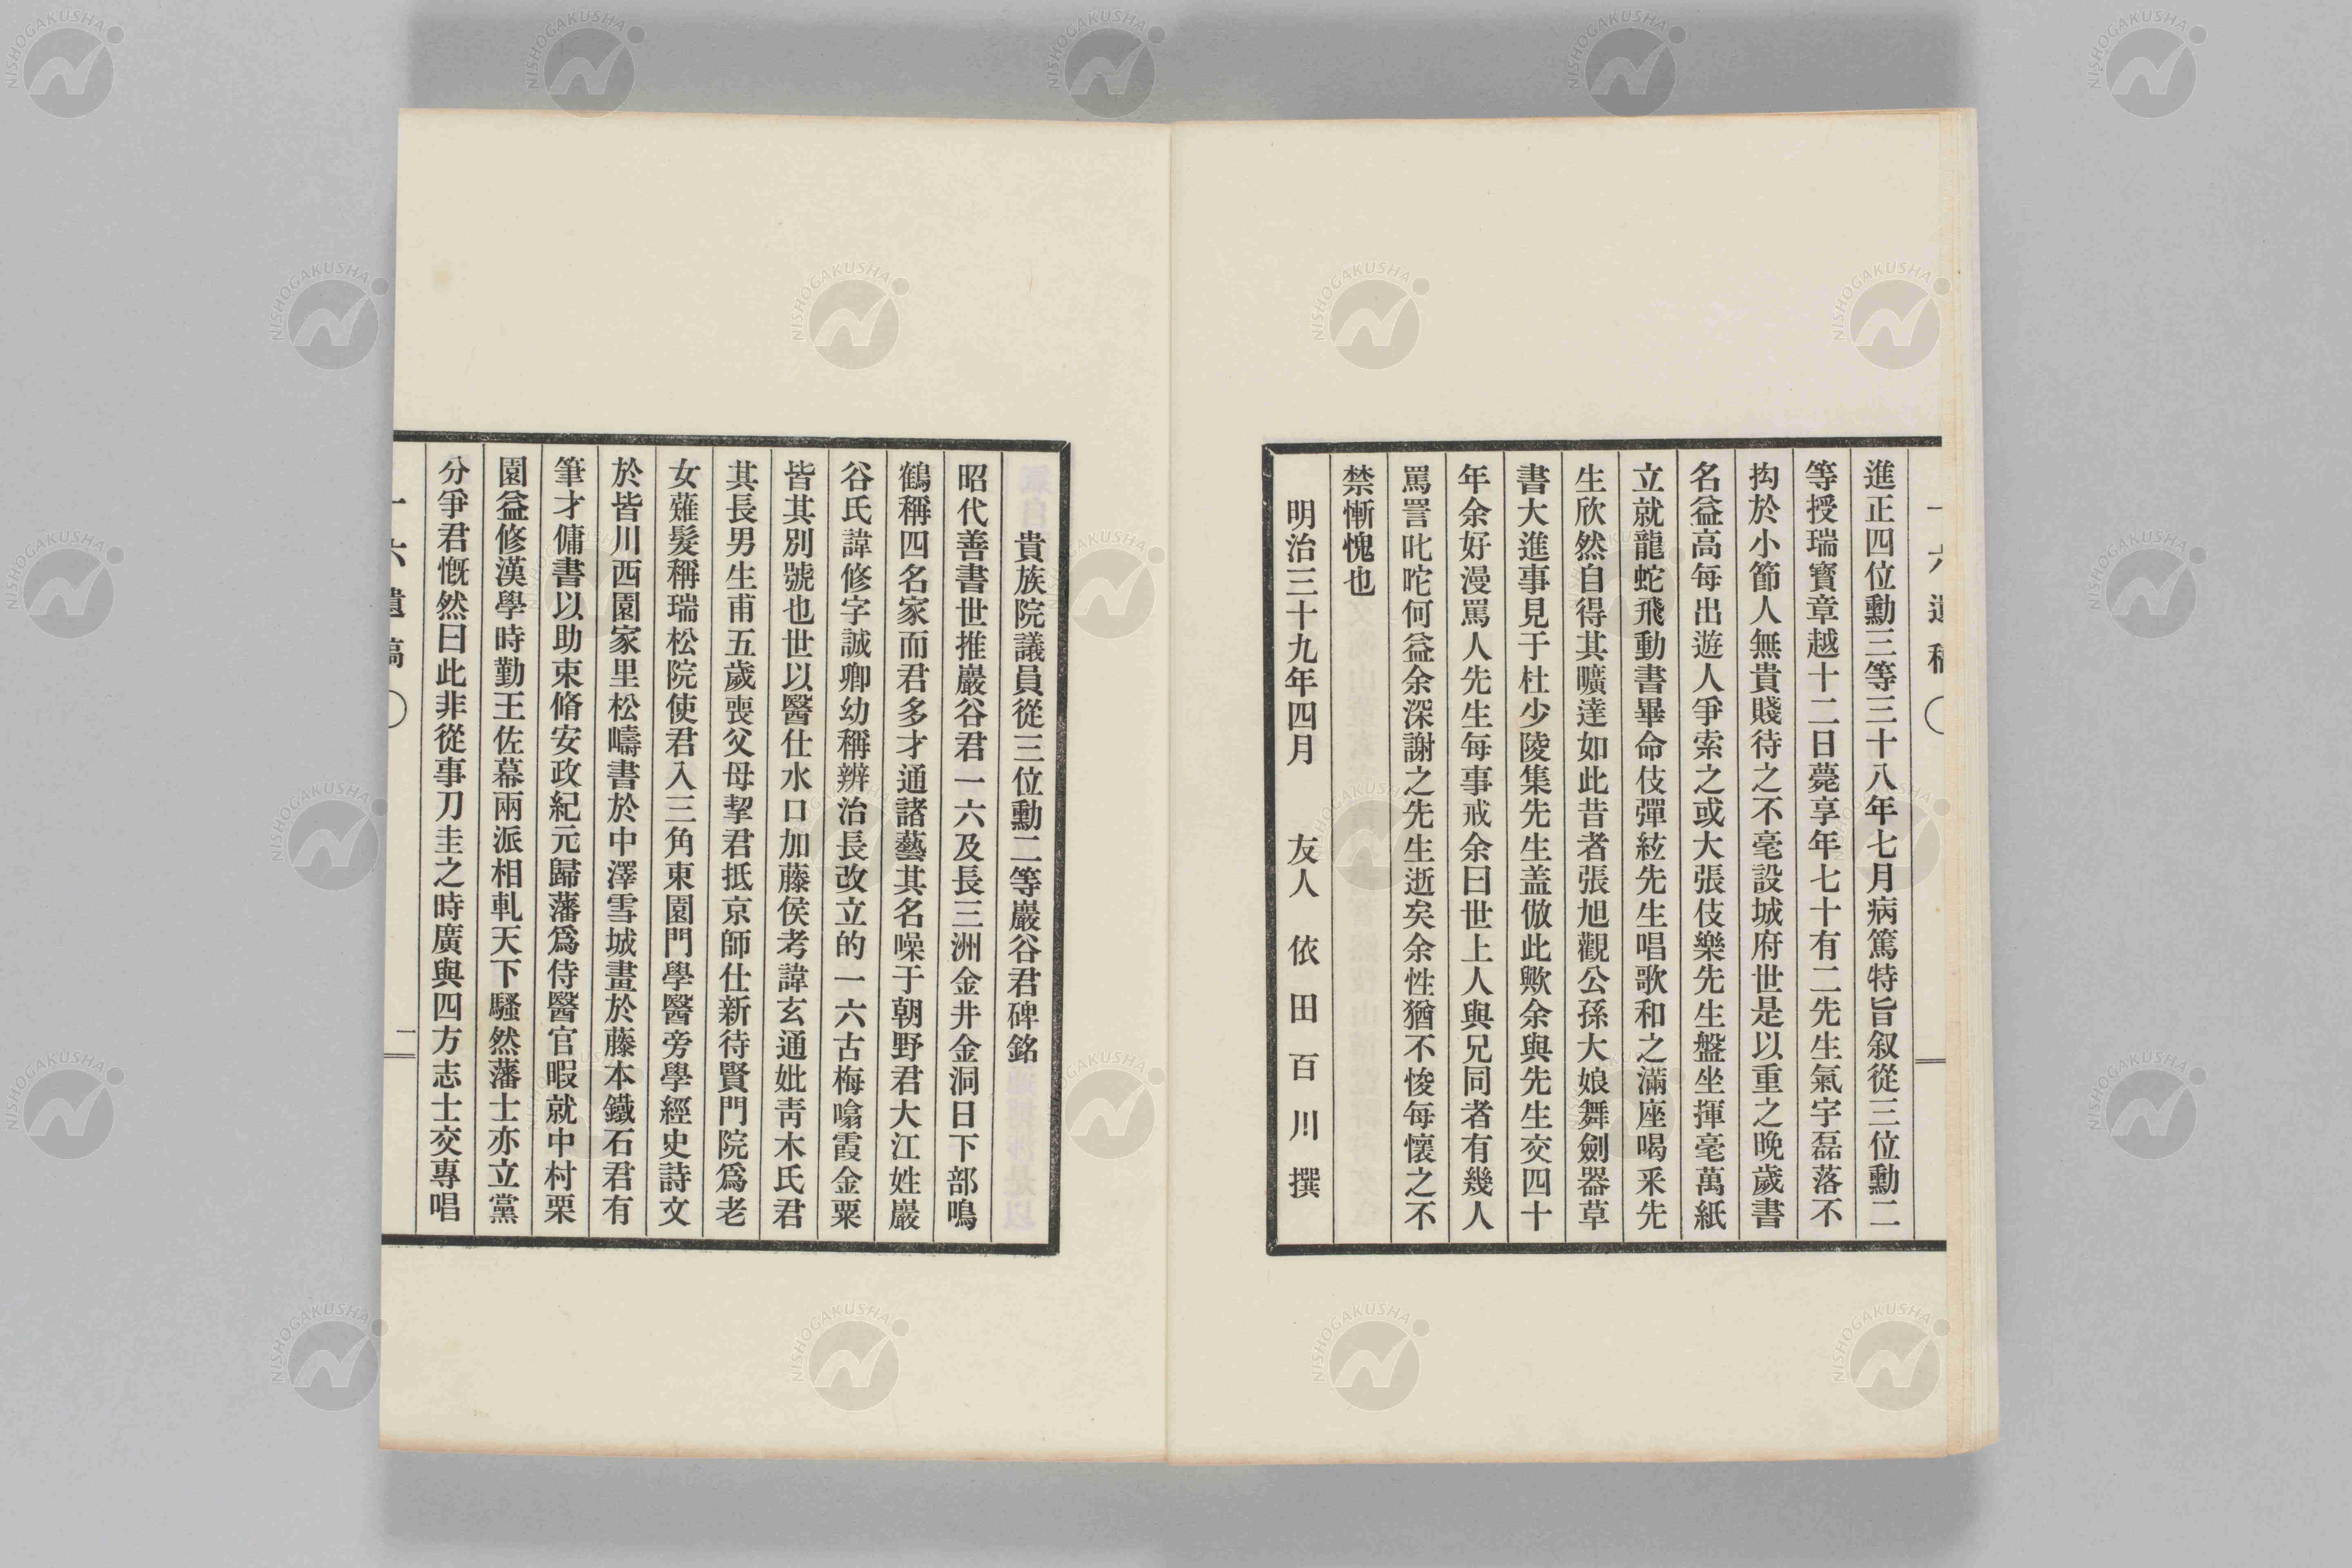 一六遺稿
進正四位勳三等三十八年七月病篤特旨叙從三位勳二
等授瑞寶章越十二日薨享年七十有二先生氣宇磊落不
拘於小節人無貴賤待之不毫設城府世是以重之晩歲書
名益高每出遊人爭索之或大張伎樂先生盤坐揮毫萬紙
立就龍蛇飛動書畢命伎彈絃先生唱歌和之滿座喝釆先
生欣然自得其曠達如此昔者張旭觀公孫大娘舞劍器草
書大進事見于杜少陵集先生盖倣此歟余與先生交四十
年余好漫罵人先生每事戒余曰世上人與兄同者有幾人
罵詈叱咜何益余深謝之先生逝矣余性猶不悛每懷之不
禁慚愧也
明治三十九年四月　友人　依田百川撰
貴族院議員從三位勳二等巖谷君碑銘
昭代善書世推巖谷君一六及長三洲金井金洞日下部鳴
鶴稱四名家而君多才通諸藝其名噪于朝野君大江姓巖
谷氏諱修字誠卿幼稱辨治長改立的一六古梅噏霞金粟
皆其別號也世以醫仕水口加藤侯考諱玄通妣靑木氏君
其長男生甫五歲喪父母挈君抵京師仕新待賢門院爲老
女薙髮稱瑞松院使君入三角東園門學醫旁學經史詩文
於皆川西園家里松嶹書於中澤雪城畫於藤本鐵石君有
筆才傭書以助束脩安政紀元歸藩爲侍醫官暇就中村栗
園益修漢學時勤王佐幕兩派相軋天下騷然藩士亦立黨
分爭君慨然曰此非從事刀圭之時廣與四方志士交專唱
一六遺稿
一
NISHOGAKUSHA